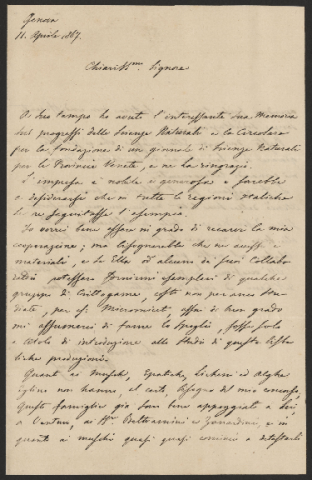 Genova
11. Aprile 1867.
Chiariss.mo Signore
A suo tempo ho avuto l'interessante sua Memoria
sui progressi delle Scienze Naturali e la Circolare
per la fondazione di un giornale di Scienze Naturali
per le Provincie Venete, e ne la ringrazio.
L'impresa è nobile e generosa e sarebbe
a desiderarsi che in tutte le regioni Italiche
se ne seguitasse l'esempio.
Io vorrei bene essere in grado di recarvi la mia
cooperazione; ma bisognerebbe che ne avessi i
materiali, e se Ella od alcuni de' suoi Collabo
ratori potessero fornirmi esemplari di qualche
gruppo di Crittogame, costì non per anco stu
diate, per es. Micromiceti, assai di buon grado
mi assumerei di farne lo spoglio, fosse solo
a titolo di introduzione allo studio di queste
produzioni.
Quanto ai Muschi, Epatiche, Licheni ed Alghe
esse non hanno, al certo, bisogno del mio concorso,
queste famiglie già sono bene appoggiate a Lei,
a Venturi, ai Sig.ri Beltramini e Zanardini, e in
quanto ai muschi quasi quasi comincio a detestarli